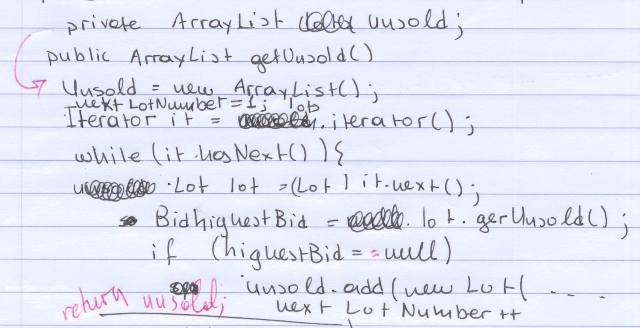 private ArrayList Unsold;
public ArrayList getUnsold()
Unsold = new ArrayList();
next LotNumber = 1;
Iterator it = lots.iterator();
while (it.hasNext()) {
Lot lot = (Lot) it.next();
BidhighestBid = lot.gerUnsold();
if (highestBid == null)
unsold.add(new Lot( ....
next Lot Number ++
return unsold;